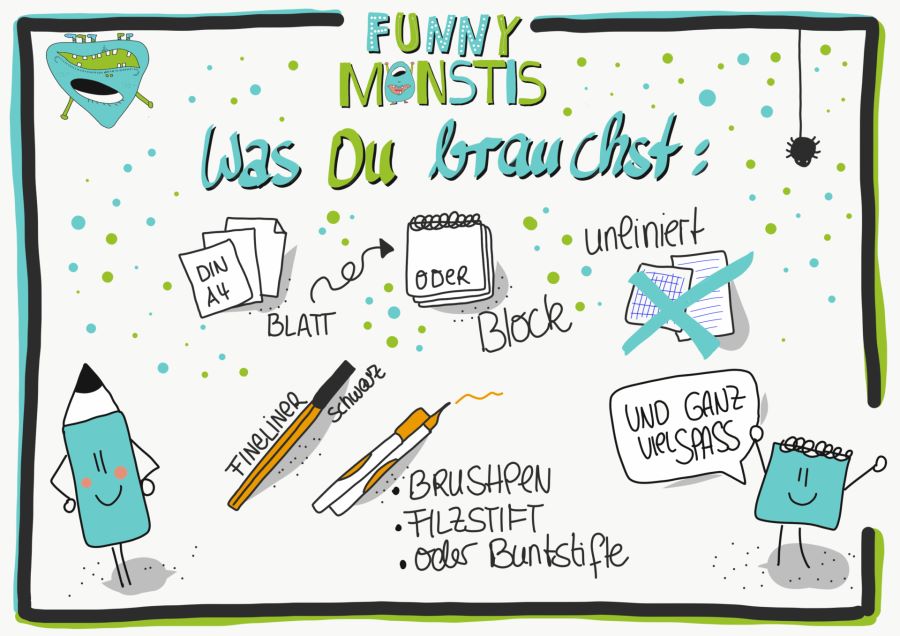 FUNNY
MONSTIS
Was Du brauchst:
DIN
A4
BLATT
ODER
Block
unliniert
FINELINER
schwarz
• BRUSHPEN
• FILZSTIFT
• oder Buntstifte
UND GANZ
VIEL SPASS